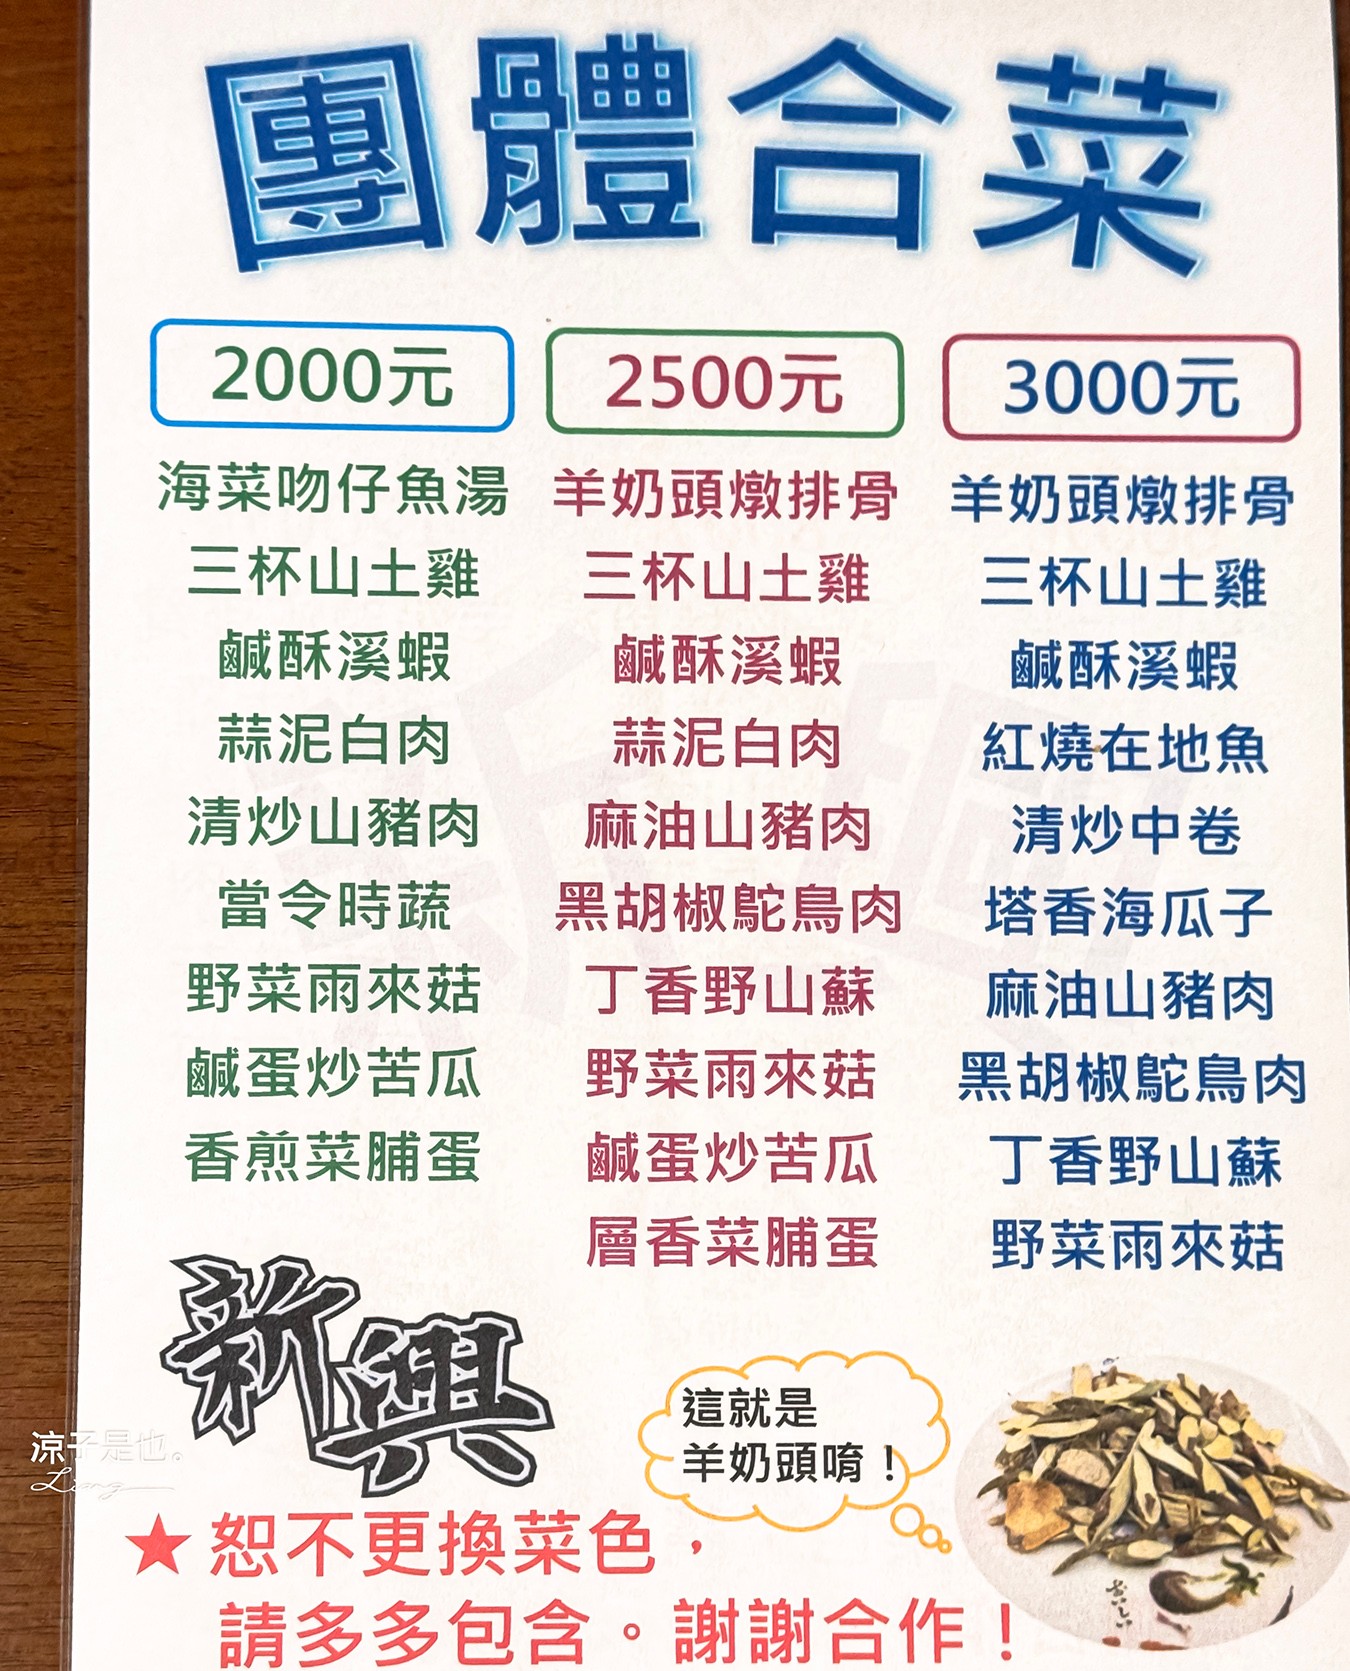 團體合菜
2000元
海菜吻仔魚湯
三杯山土雞
鹹酥溪蝦
蒜泥白肉
清炒山豬肉
當令時蔬
野菜雨來菇
鹹蛋炒苦瓜
香煎菜脯蛋
2500元
羊奶頭燉排骨
三杯山土雞
鹹酥溪蝦
蒜泥白肉
麻油山豬肉
黑胡椒鴕鳥肉
丁香野山蘇
野菜雨來菇
鹹蛋炒苦瓜
層香菜脯蛋
3000元
羊奶頭燉排骨
三杯山土雞
鹹酥溪蝦
紅燒在地魚
清炒中卷
塔香海瓜子
麻油山豬肉
黑胡椒鴕鳥肉
丁香野山蘇
野菜雨來菇
新興
這就是
羊奶頭唷！
涼子是也。
Liang
★恕不更換菜色，
請多多包含。謝謝合作！